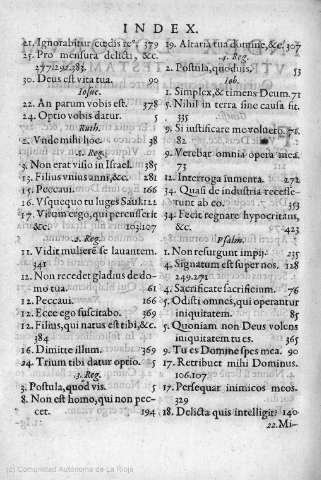 INDEX.
21. Ignorabitur cædis reꝰ. 379
25. Pro mensura delicti, &c.
277.291.383.
30. Deus est vita tua. 90
Iosue.
22. An parum vobis est. 378
24. Optio vobis datur. 5
Ruth.
2. Vnde mihi hoc. 38
1. Reg.
3. Non erat visio in Israel. 385
13. Filius vnius anni, &c. 281
15. Peccaui. 166
16. Vsquequo tu luges Saul. 122
17. Virum ergo, qui percusserit
&c. 103.107
2. Reg.
11. Vidit muliere se lauantem.
341
12. Non recedet gladius de do-
mo tua. 61
12. Peccaui. 166
12. Ecce ego suscitabo. 369
12. Filius, qui natus est tibi, &c.
384
16. Dimitte illum. 369
24. Trium tibi datur optio. 5
3. Reg.
3. Postula, quod vis. 5
8. Non est homo, qui non pec-
cet. 194
19. Altaria tua domine, &c. 307
4. Reg.
2. Postula, quod vis. 55
Iob.
1. Simplex, & timens Deum. 71
5. Nihil in terra sine causa fit.
335
9. Si iustificare me voluero. 78.
82
9. Verebar omnia opera mea.
71
12. Interroga iumenta. 272
34. Quasi de industria recesse-
runt ab eo. 353
34. Fecit regnare hypocritans,
&c. 423
Psalm.
1. Non resurgunt impij. 235
4. Signatum est super nos. 128
249.271
4. Sacrificate sacrificium. 76
5. Odisti omnes, qui operantur
iniquitatem. 85
5. Quoniam non Deus volens
iniquitatem tu es. 365
9. Tu es Domine spes mea. 90
17. Retribuet mihi Dominus.
106.107
17. Persequar inimicos meos.
329
18. Delicta quis intelligit? 140
22. Mi-
(c) Comunidad Autónoma de La Rioja